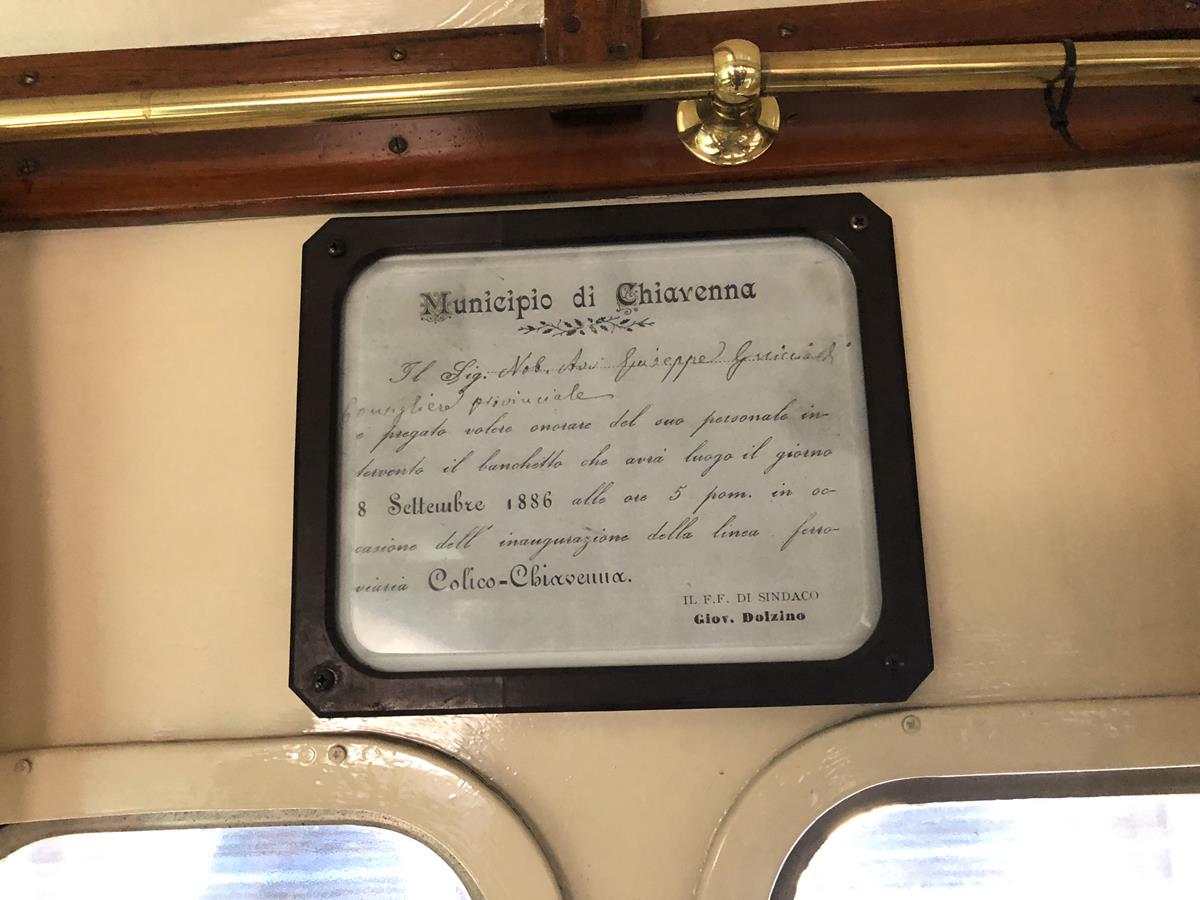 Municipio di Chiavenna
Il Sig. Nob. Avv Giuseppe Guicciardi
Consigliere provinciale
è pregato volere onorare del suo personale in-
tervento il banchetto che avrà luogo il giorno
8 Settembre 1886 alle ore 5 pom. in oc-
casione dell' inaugurazione della linea ferro-
viaria Colico-Chiavenna.
IL F.F. DI SINDACO
Giov. Dolzino